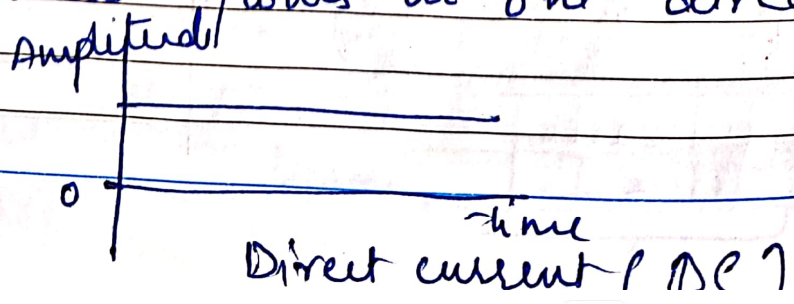 in one
Amplitude
0
time
Direct current (DC)